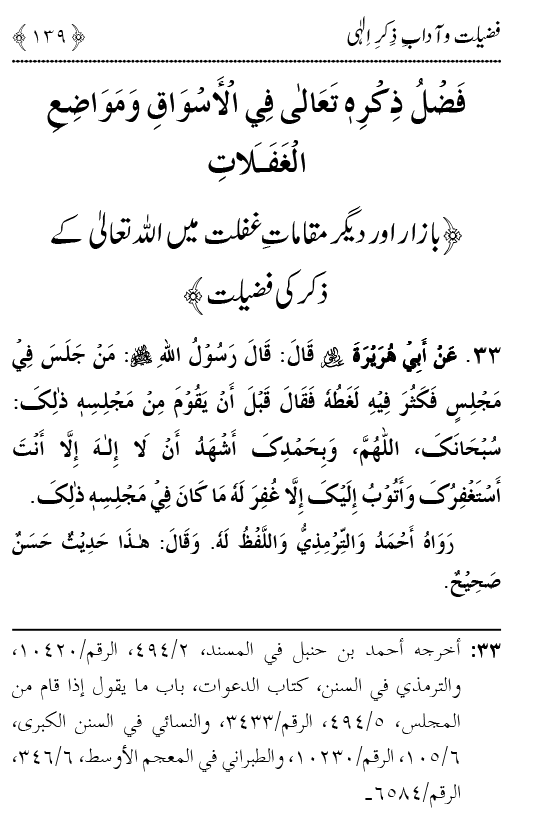 فضیلت و آدابِ ذِکرِ اِلٰہی ﴿١٣٩﴾
فَضْلُ ذِكْرِهٖ تَعَالٰی فِي الْأَسْوَاقِ وَمَوَاضِعِ
الْغَفَـلَاتِ
﴿بازار اور دیگر مقاماتِ غفلت میں اللہ تعالیٰ کے
ذکر کی فضیلت﴾
٣٣. عَنْ أَبِيْ هُرَيْرَةَ ﷜ قَالَ: قَالَ رَسُوْلُ اللهِ ﷺ: مَنْ جَلَسَ فِيْ
مَجْلِسٍ فَكَثُرَ فِيْهِ لَغَطُهٗ فَقَالَ قَبْلَ أَنْ يَقُوْمَ مِنْ مَجْلِسِهٖ ذٰلِکَ:
سُبْحَانَکَ، اللّٰهُمَّ، وَبِحَمْدِکَ أَشْهَدُ أَنْ لَا إِلٰـهَ إِلَّا أَنْتَ
أَسْتَغْفِرُکَ وَأَتُوْبُ إِلَيْکَ إِلَّا غُفِرَ لَهٗ مَا كَانَ فِيْ مَجْلِسِهٖ ذٰلِکَ.
رَوَاهُ أَحْمَدُ وَالتِّرْمِذِيُّ وَاللَّفْظُ لَهٗ. وَقَالَ: هٰـذَا حَدِيْثٌ حَسَنٌ
صَحِيْحٌ.
٣٣: أخرجه أحمد بن حنبل في المسند، ٢/٤٩٤، الرقم/١٠٤٢٠،
والترمذي في السنن، كتاب الدعوات، باب ما يقول إذا قام من
المجلس، ٥/٤٩٤، الرقم/٣٤٣٣، والنسائي في السنن الكبرى،
٦/١٠٥، الرقم/١٠٢٣٠، والطبراني في المعجم الأوسط، ٦/٣٤٦،
الرقم/٦٥٨٤ـ